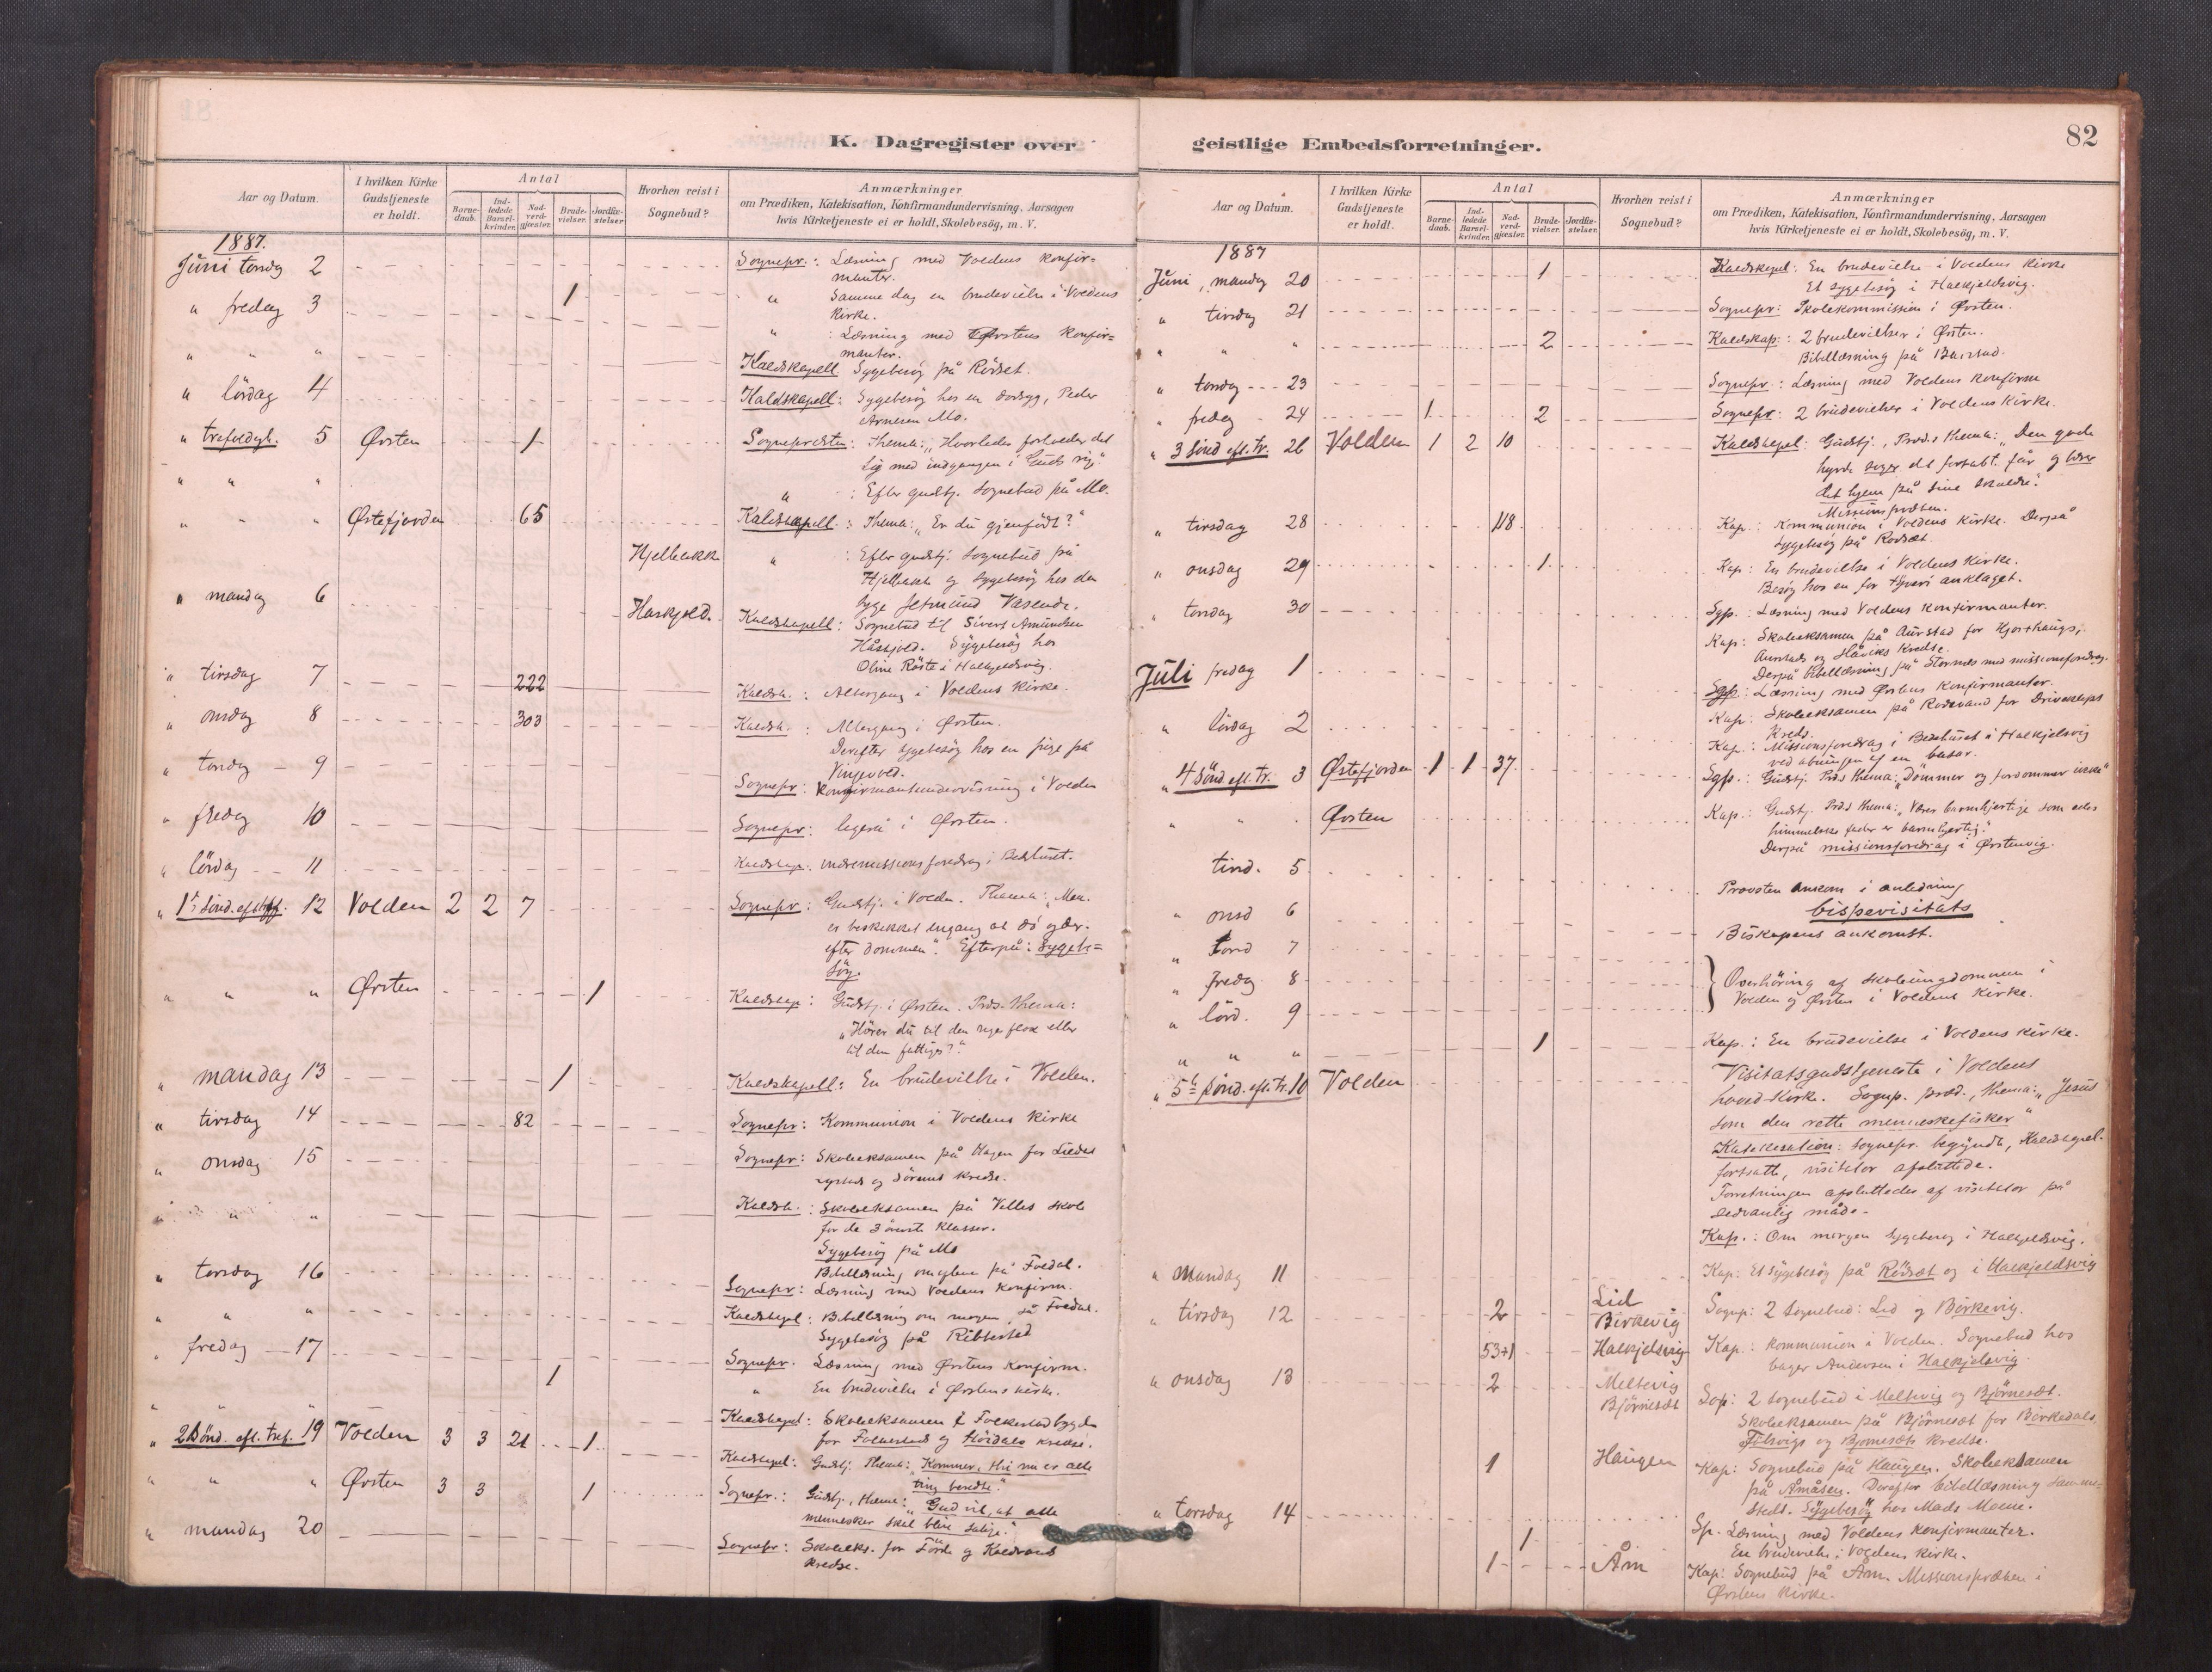 K. Dagregister over
Aar og Datum.
I hvilken Kirke Gudstjeneste er holdt.
Antal
Barne-daab.
Ind-ledede Barsel-kvinder.
Nad-verd-gjæster.
Brude-vielser.
Jordfæ-stelser.
Hvorhen reist i Sognebud?
Anmærkninger
om Prædiken, Katekisation, Konfirmandundervisning, Aarsagen
hvis Kirketjeneste ei er holdt, Skolebesög, m. V.
1887.
Juni torsdag 2
Sognepr.: Læsning med Voldens konfir=
manter.
" fredag 3 1
" Samme dag en brudevielse i Voldens
Kirke.
" : Læsning med Ørstens Konfir=
manter.
" " "
Kaldskapell Sygebesög på Rødset.
" lördag 4
Kaldskapell: Sygebesög hos en dødsyg, Peder
Arnesen Mo.
" trefoldigh. 5 Ørsten 1
Sognepræsten: Thema: "Hvorledes forholder det
sig med indgangen i Guds rig."
" " "
" : Efter gudstj. Sognebud på Mo.
" " " Østefjorden 65
Kaldskapell.: Thema: "Er du gjenfödt?"
Hjelbakk
" : Efter gudstj. Sognebud på
Hjelbakk og sygebesög hos den
syge Jetmund Vasende.
" mandag 6 Haskjold.
Kaldskapell: Sognebud til Sivert Amundsen
Håskjold. Sygebesög hos
Oline Röste i Halkjeldsvig.
" tirsdag 7 222
Kaldsk.: Altergang i Voldens Kirke.
" onsdag 8 303
Kaldsk.: Altergang i Ørsten.
Derefter sygebesög hos en pige på
Vinjevold.
" torsdag 9
Sognepr: Konfirmantundervisning i Volden
" fredag 10
Sognepr: ligeså i Ørsten.
" lördag 11
Kaldskap. indremissionsforedrag i Bedehuset.
" 1ste Sönd. eft. tref. 12 Volden 2 2 7
Sognepr: Gudstj. i Volden. Thema: "Men.
er beskikket engang at dö og der-
efter dommen". Efterpå: Sygebe=
sög.
" " " Ørsten 1
Kaldskap: Gudstj. i Ørsten. Præd. thema:
"Hörer du til den riges flok eller
til den fattiges?"
" mandag 13 1
Kaldskapell: En brudevielse i Volden.
" tirsdag 14 82
Sognepr: Kommunion i Voldens Kirke
" onsdag 15
Sognepr: Skoleeksamen på Hagen for Liedes
og Sörems kredse.
" " "
Kaldsk.: Skoleeksamen på Velles Skole
for de 3 överste klasser.
Sygebesög på Mo
Bibellæsning om aftenen på Foldal.
" torsdag 16
Sognepr: Læsning med Voldens konfirm.
" " "
Kaldskapel: Bibellæsning om morgen på Foldal.
Sygebesög på Ribbestad
" fredag 17
Sognepr. Læsning med Ørstens konfirm.
1
" En brudevielse i Ørstens kirke.
" " "
Kaldskapel: Skoleeksamen i Folkestadbygden
for Folkestads og Höidals kredse.
" 2 Sönd. eft. tref. 19 Volden 3 3 21 1
Kaldskapel: Gudstj. Thema: "Kommer, thi nu er alle
ting beredte."
" " " Ørsten 3 3 1
Sognepr.: Gudstj., thema: "Gud vil, at alle
mennesker skal blive salige."
" mandag 20
Sognepr: Skoleeks. for Förde og Kaldvands
kredse.
geistlige Embedsforretninger.
82
Aar og Datum.
I hvilken Kirke Gudstjeneste er holdt.
Antal
Barne-daab.
Ind-ledede Barsel-kvinder.
Nad-verd-gjæster.
Brude-vielser.
Jordfæ-stelser.
Hvorhen reist i Sognebud?
Anmærkninger
om Prædiken, Katekisation, Konfirmandundervisning, Aarsagen
hvis Kirketjeneste ei er holdt, Skolebesög, m. V.
1887
Juni, mandag 20 1
Kaldskapel: En brudevielse i Voldens Kirke
Et sygebesög i Halkjeldsvig.
" tirsdag 21
Sognepr: Skolekommission i Ørsten.
" " " 2
Kaldskap.: 2 brudevielser i Ørsten.
Bibellæsning på Barstad.
" torsdag 23
Sognepr.: Læsning med Voldens konfirm
" fredag 24 1 2
Sognepr: 2 brudevielser i Voldens Kirke.
" 3 Sönd eft. tr. 26 Volden 1 2 10
Kaldskapel: Gudstj., Præd. thema: "Den gode
hyrde söger det fortabte får og bærer
det hjem på sine skuldre".
Missionspræken.
" tirsdag 28 118
Kap.: Kommunion i Voldens Kirke. Derpå
sygebesög på Rödsæt.
" onsdag 29 1
Kap: En brudevielse i Voldens Kirke.
Besög hos en for tyveri anklaget.
" torsdag 30
Sgp.: Læsning med Voldens konfirmanter.
Kap: Skoleeksamen på Aurstad for Hjorthaugs,
Aurstads og Håviks Kredse.
Derpå bibellæsning på Stornes med missionsforedrag.
Juli fredag 1
Sgp.: Læsning med Ørstens konfirmanter.
Kap: Skoleeksamen på Rodevand for Driveklepps
Kreds.
" lördag 2
Kap.: Missionsforedrag i Bedehuset i Halkjelsvig
ved åbningen af en basar.
" 4 Sönd. eft. tr. 3 Østefjorden 1 1 37
Sgp.: Gudstj. Præd. thema: "Dömmer og fordömmer ikke"
" " " Ørsten
Kap.: Gudstj. Præd. thema: "Værer barmhjertige som eders
himmelske fader er barmhjertig."
Derpå missionsforedrag i Ørstenvig.
tirsd. 5
Provsten ankom i anledning
bispevisitats
" onsd 6
Biskopens ankomst.
" torsd 7
" fredag 8
Overhöring af skoleungdommen i
Volden og Ørsten i Voldens Kirke.
" lörd. 9
" " " 1
Kap.: En brudevielse i Voldens kirke.
" 5te Sönd. eft. tr. 10 Volden
Visitatsgudstjeneste i Voldens
hovedkirke. Sognp. præd., thema: "Jesus
som den rette menneskefisker"
Katekesation: Sognepr. begyndte, Kaldskapel.
fortsatte, visitator afsluttede.
Forretningen afsluttedes af visitator på
sedvanlig måde.
Kap.: Om morgen sygebesög i Halkjeldsvig.
" Mandag 11
Kap: Et sygebesög på Rödsæt og i Halkjeldsvig
" tirsdag 12 2 Lid
Birkevig
Sognp: 2 Sognebud: Lid og Birkevig.
53+1 Halkjelsvig
Kap.: kommunion i Volden. Sognebud hos
bager Andersen i Halkjelsvig.
" onsdag 13 2 Meltevig
Björnesæt
Sgp: 2 sognebud i Meltevig og Björnesæt.
Skoleeksamen på Björnesæt for Birkedals,
og Bjørnesæts kredse.
1 Haugen
Kap: Sognebud på Haugen. Skoleeksamen
på Åmåsen. Derefter bibellæsning samme-
steds. Sygebesög hos Mads Moene.
" torsdag 14
Sp. Læsning med Voldens konfirmanter.
1
En brudevielse i Voldens Kirke.
1 Åm
Kap: Sognebud på Åm. Missionspræken i
Ørstens Kirke.